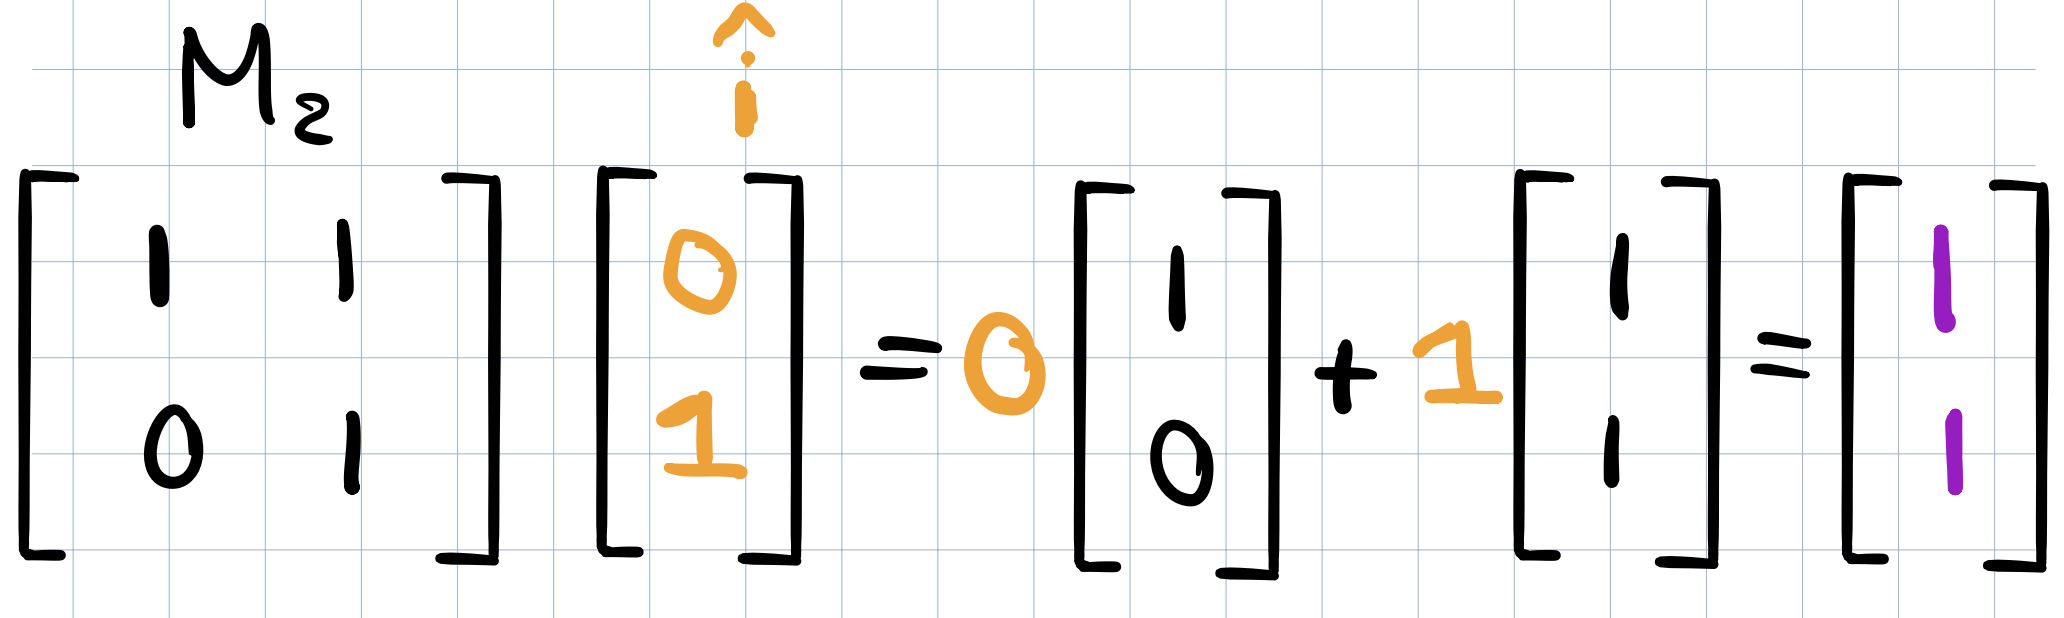 M₂ î
[1 1; 0 1] [0; 1] = 0 [1; 0] + 1 [1; 1] = [1; 1]